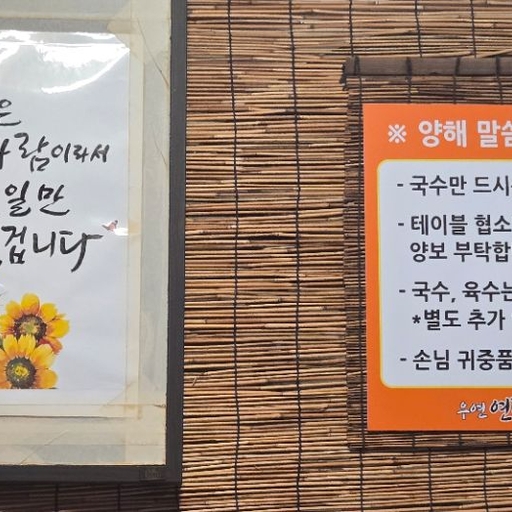 은
람이라서
일만
겁니다
※ 양해 말씀
- 국수만 드시
- 테이블 협소
양보 부탁합
- 국수, 육수는
*별도 추가
- 손님 귀중품
우연